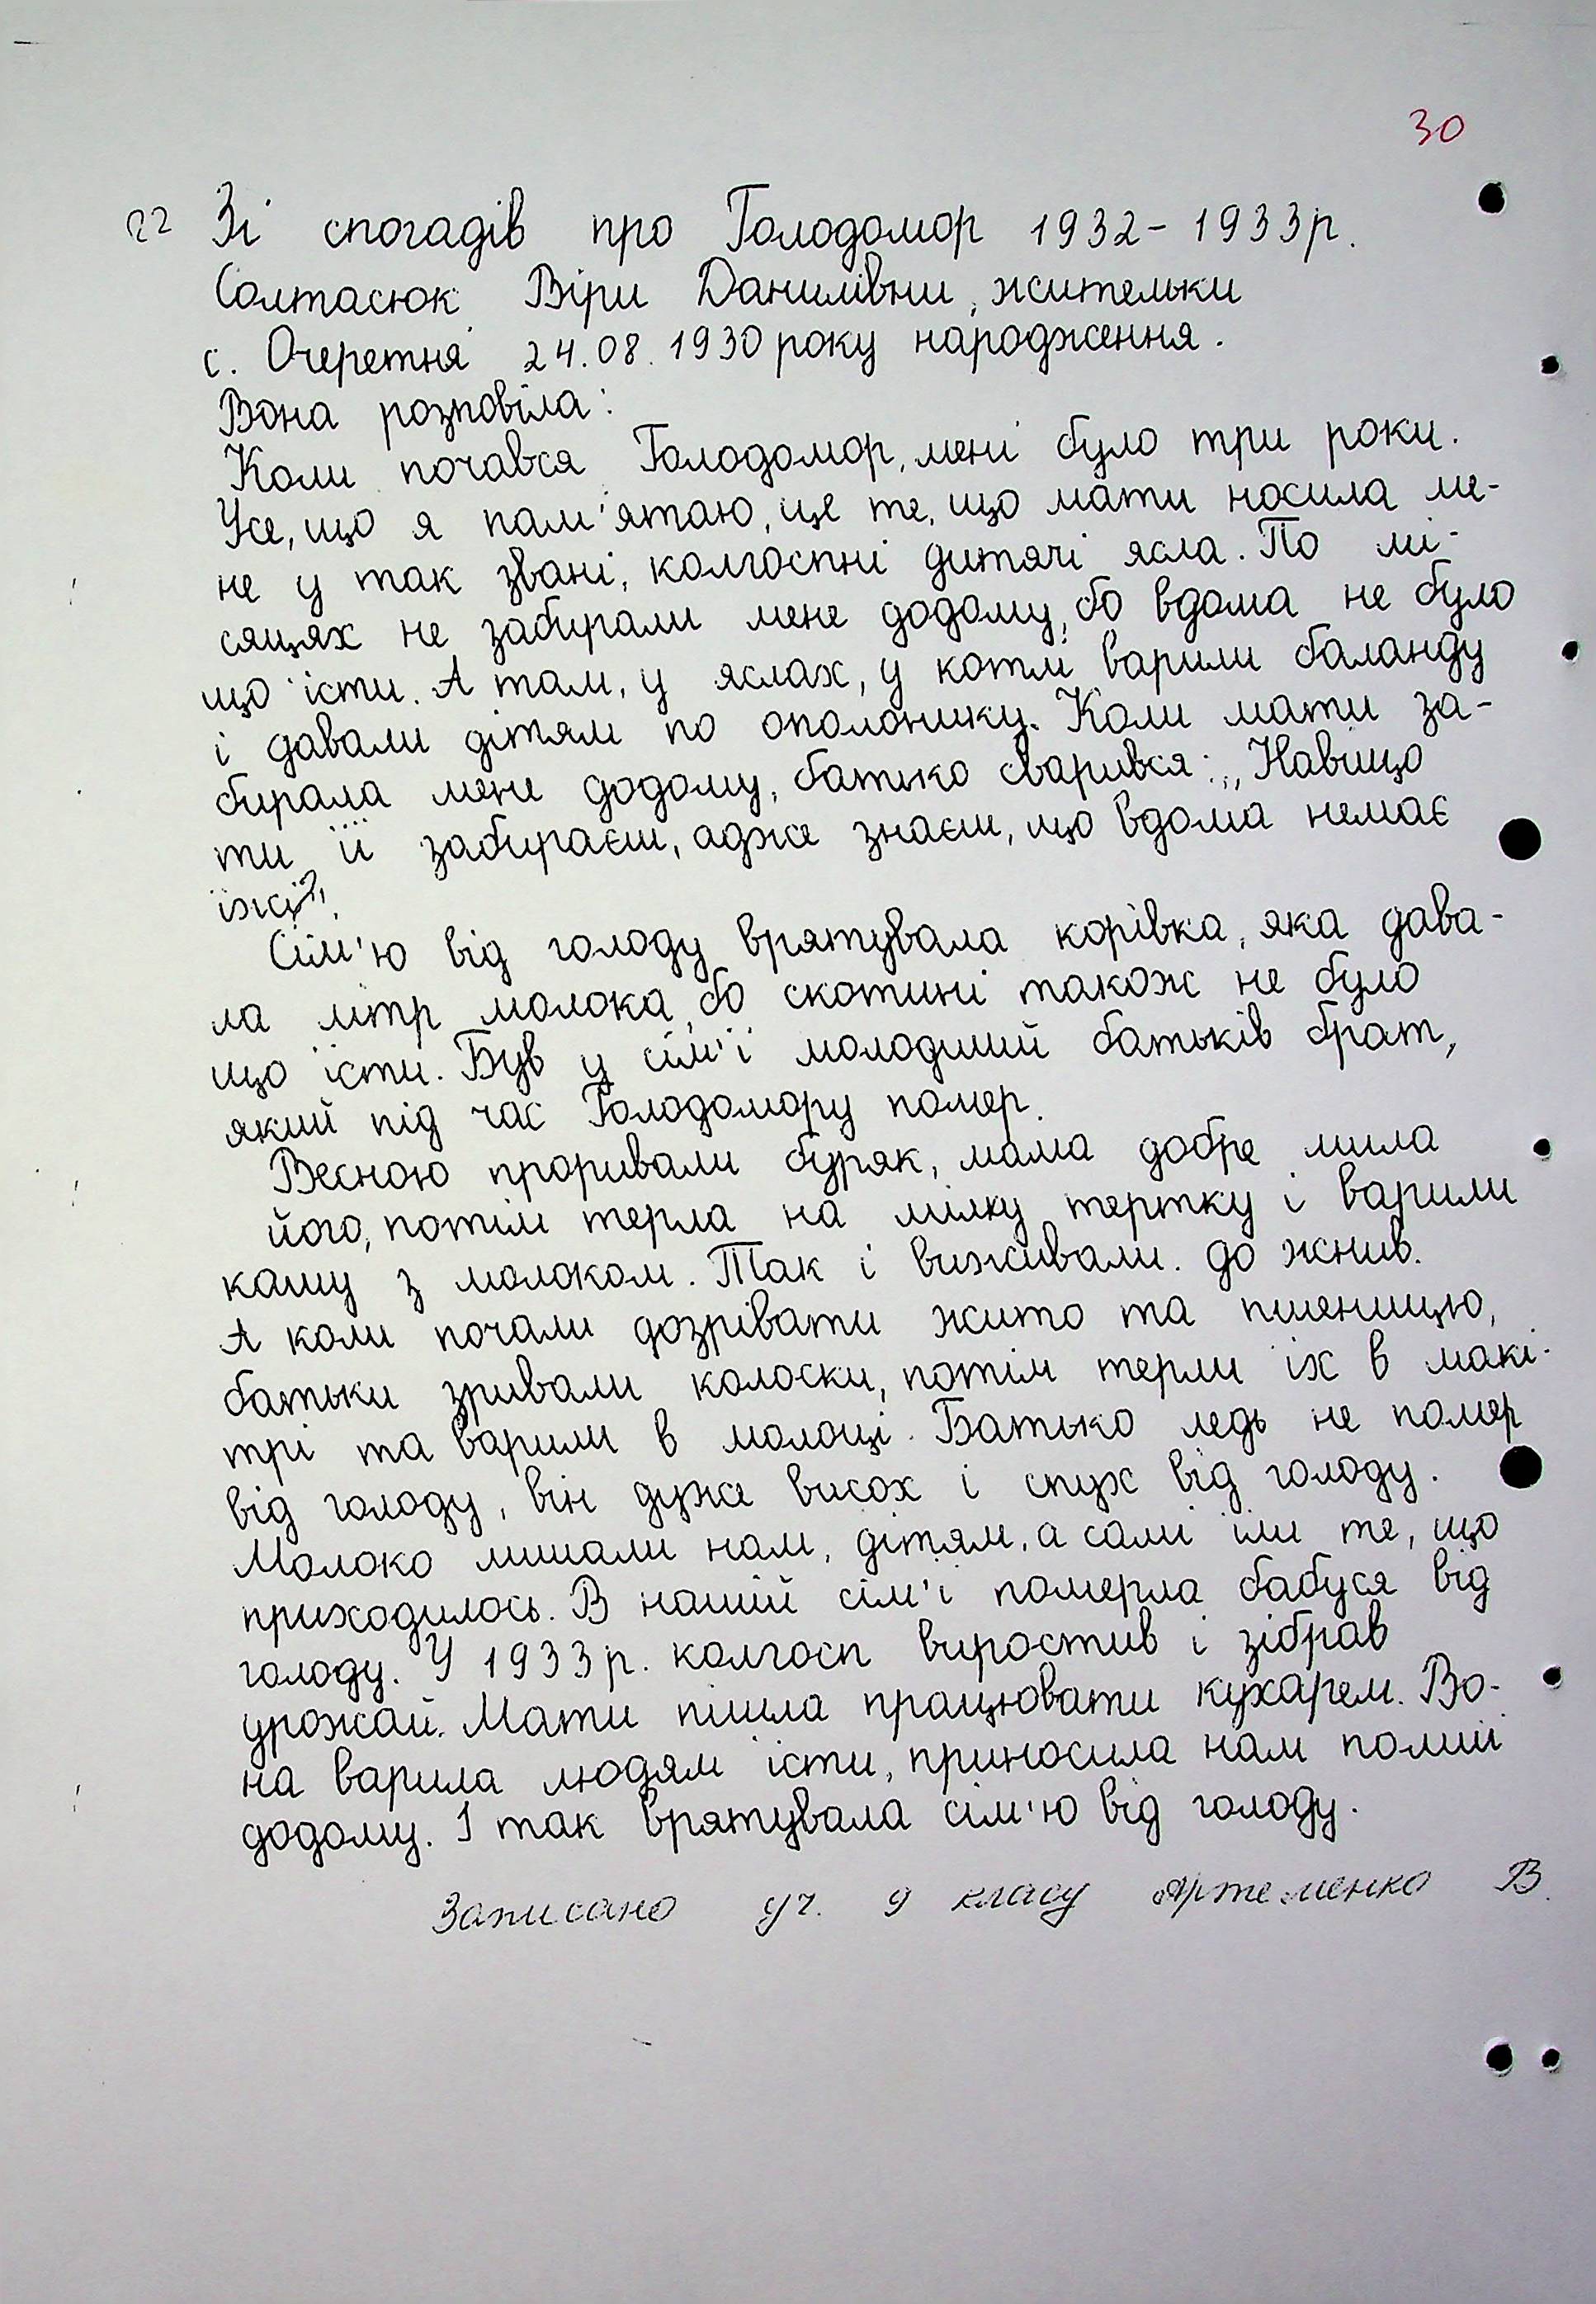 30
22 Зі спогадів про Голодомор 1932-1933р.
Солтасюк Віри Данилівни, жительки
с. Очеретня 24.08.1930 року народження.
Вона розповіла:
Коли почався Голодомор, мені було три роки.
Усе, що я пам'ятаю, це те, що мати носила ме-
не у так звані, колгоспні дитячі ясла. По мі-
сяцях не забирали мене додому, бо вдома не було
що їсти. А там, у яслах, у котлі варили баланду
і давали дітям по ополонику. Коли мати за-
бирала мене додому, батько сварився: „Навіщо
ти її забираєш, адже знаєш, що вдома немає
їжі?"
Сім'ю від голоду врятувала корівка, яка дава-
ла літр молока, бо скотині також не було
що їсти. Був у сім'ї молодший батьків брат,
який під час Голодомору помер.
Весною проривали буряк, мама добре мила
його, потім терла на мілку тертку і варили
кашу з молоком. Так і виживали. до жнив.
А коли почали дозрівати жито та пшеницю,
батьки зривали колоски, потім терли їх в макі-
трі та варили в молоці. Батько ледь не помер
від голоду, він дуже висох і спух від голоду.
Молоко лишали нам, дітям, а самі їли те, що
приходилось. В нашій сім'ї померла бабуся від
голоду. У 1933р. колгосп виростив і зібрав
урожай. Мати пішла працювати кухарем. Во-
на варила людям їсти, приносила нам помиї
додому. І так врятувала сім'ю від голоду.
Записано уч. 9 класу Артеменко В.